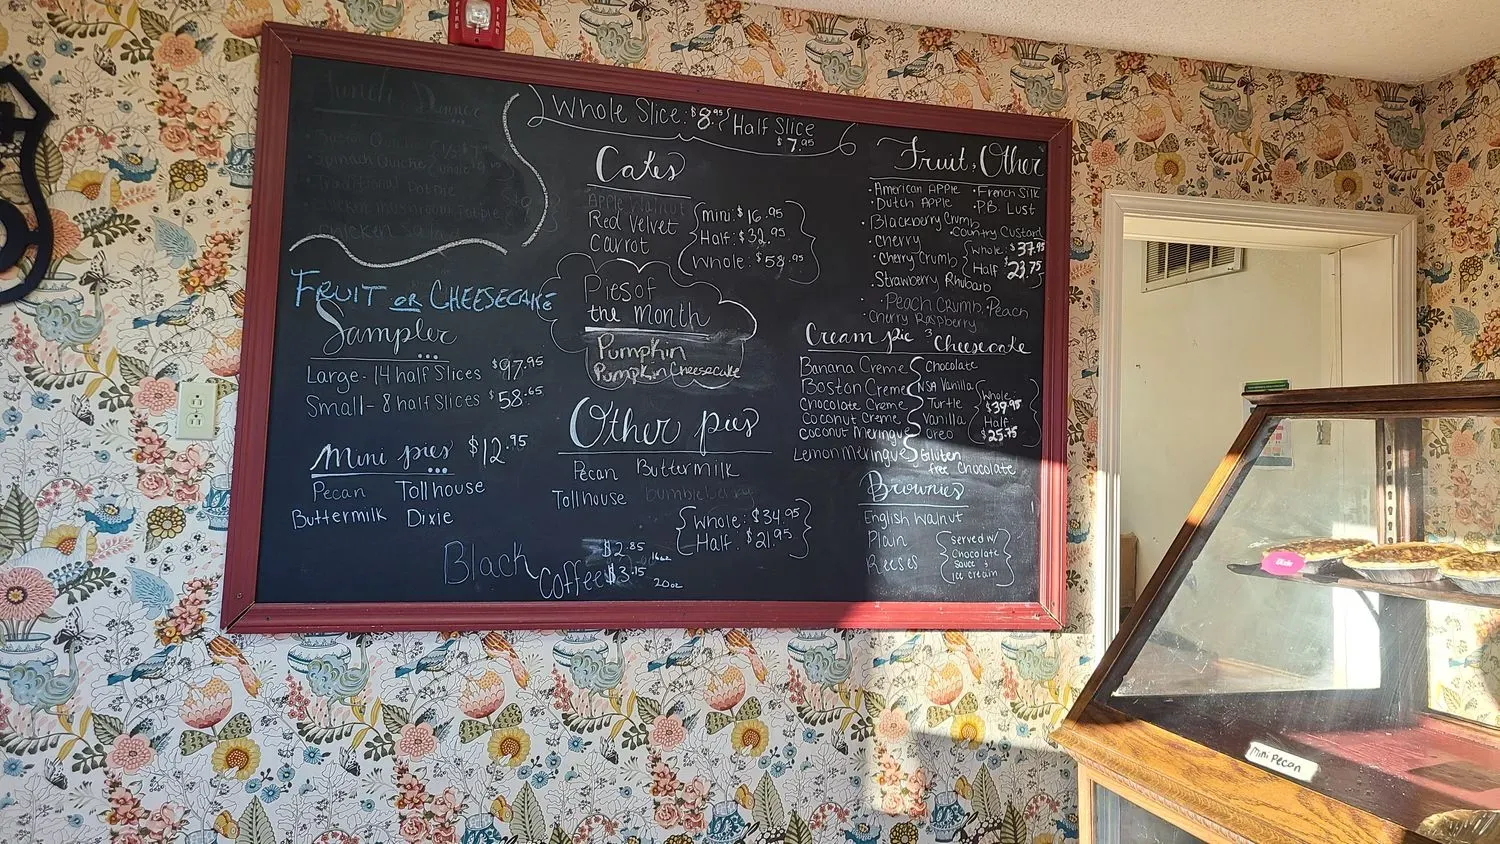 FIRE
FIRE
Lunch Dinner
Spinach Quiche
Traditional Potpie
Chicken Mushroom Potpie
Chicken Salad
Whole Slice: $8.95 Half Slice
$7.95
Cakes
Apple Walnut
Red Velvet
Carrot
mini: $16.95
Half: $32.95
Whole: $58.95
Fruit, Other
• American Apple • French Silk
• Dutch Apple • P.B. Lust
• Blackberry Crumb
• Country Custard
• Cherry
• Cherry Crumb
• Strawberry Rhubarb
Whole: $37.95
Half 23.75
• Peach Crumb, Peach
• Cherry Raspberry
Fruit or Cheesecake
Sampler
Large - 14 half Slices $97.95
Small - 8 half Slices $58.65
Pies of
the month
Pumpkin
Pumpkin Cheesecake
Cream pie & Cheesecake
Banana Creme
Boston Creme
Chocolate Creme
Coconut Creme
Coconut Meringue
Lemon Meringue
Chocolate
NSA Vanilla
Turtle
Vanilla
Oreo
Gluten
free Chocolate
Whole
$39.95
Half
$25.75
Mini pies $12.95
Pecan Tollhouse
Buttermilk Dixie
Other pies
Pecan Buttermilk
Tollhouse bumbleberry
Whole: $34.95
Half: $21.95
Brownies
English Walnut
Plain
Reeses
served w/
Chocolate
sauce &
ice cream
Black Coffee
$2.85 16oz
$3.15 20oz
Dixie
Mini Pecan